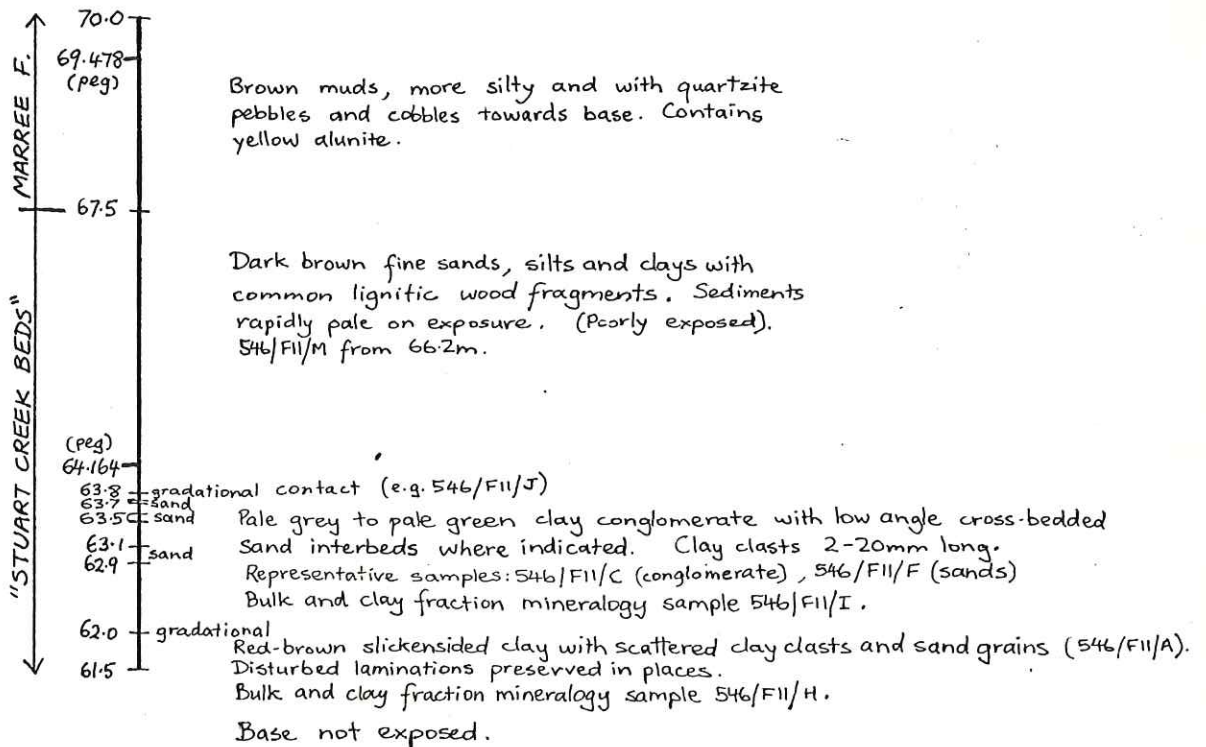 70.0
69.478
(peg)
MARREE F.
Brown muds, more silty and with quartzite
pebbles and cobbles towards base. Contains
yellow alunite.
67.5
"STUART CREEK BEDS"
Dark brown fine sands, silts and clays with
common lignitic wood fragments. Sediments
rapidly pale on exposure. (Poorly exposed).
546/F11/M from 66.2m.
(peg)
64.164
63.8 gradational contact (e.g. 546/F11/J)
63.7 sand
63.5 sand Pale grey to pale green clay conglomerate with low angle cross-bedded
63.1 sand Sand interbeds where indicated. Clay clasts 2-20mm long.
62.9 Representative samples: 546/F11/C (conglomerate), 546/F11/F (sands)
Bulk and clay fraction mineralogy sample 546/F11/I.
62.0 gradational
Red-brown slickensided clay with scattered clay clasts and sand grains (546/F11/A).
61.5 Disturbed laminations preserved in places.
Bulk and clay fraction mineralogy sample 546/F11/H.
Base not exposed.